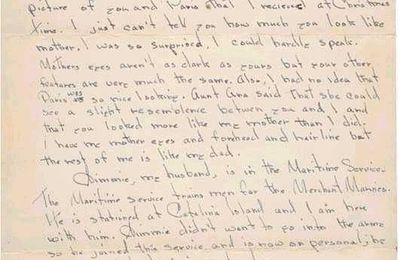 picture of you and Paris that I recieved at Christmas
time. I just can't tell you how much you look like
mother. I was so surprised, I could hardly speak.
Mothers eyes aren't as dark as yours but your other
features are very much the same. Also, I had no idea that
Paris was so nice looking. Aunt Ana said that she could
see a slight resemblence between you and I and
that you looked more like my mother than I did.
I have my mother eyes and forehead and hairline but
the rest of me is like my dad.
Jimmie, my husband, is in the Maritime Service.
The Maritime service trains men for the Merchant Marines.
He is stationed at Catalina Island and I am here
with him. Jimmie didn't want to go into the army
so he joined this service and is now on personal, he